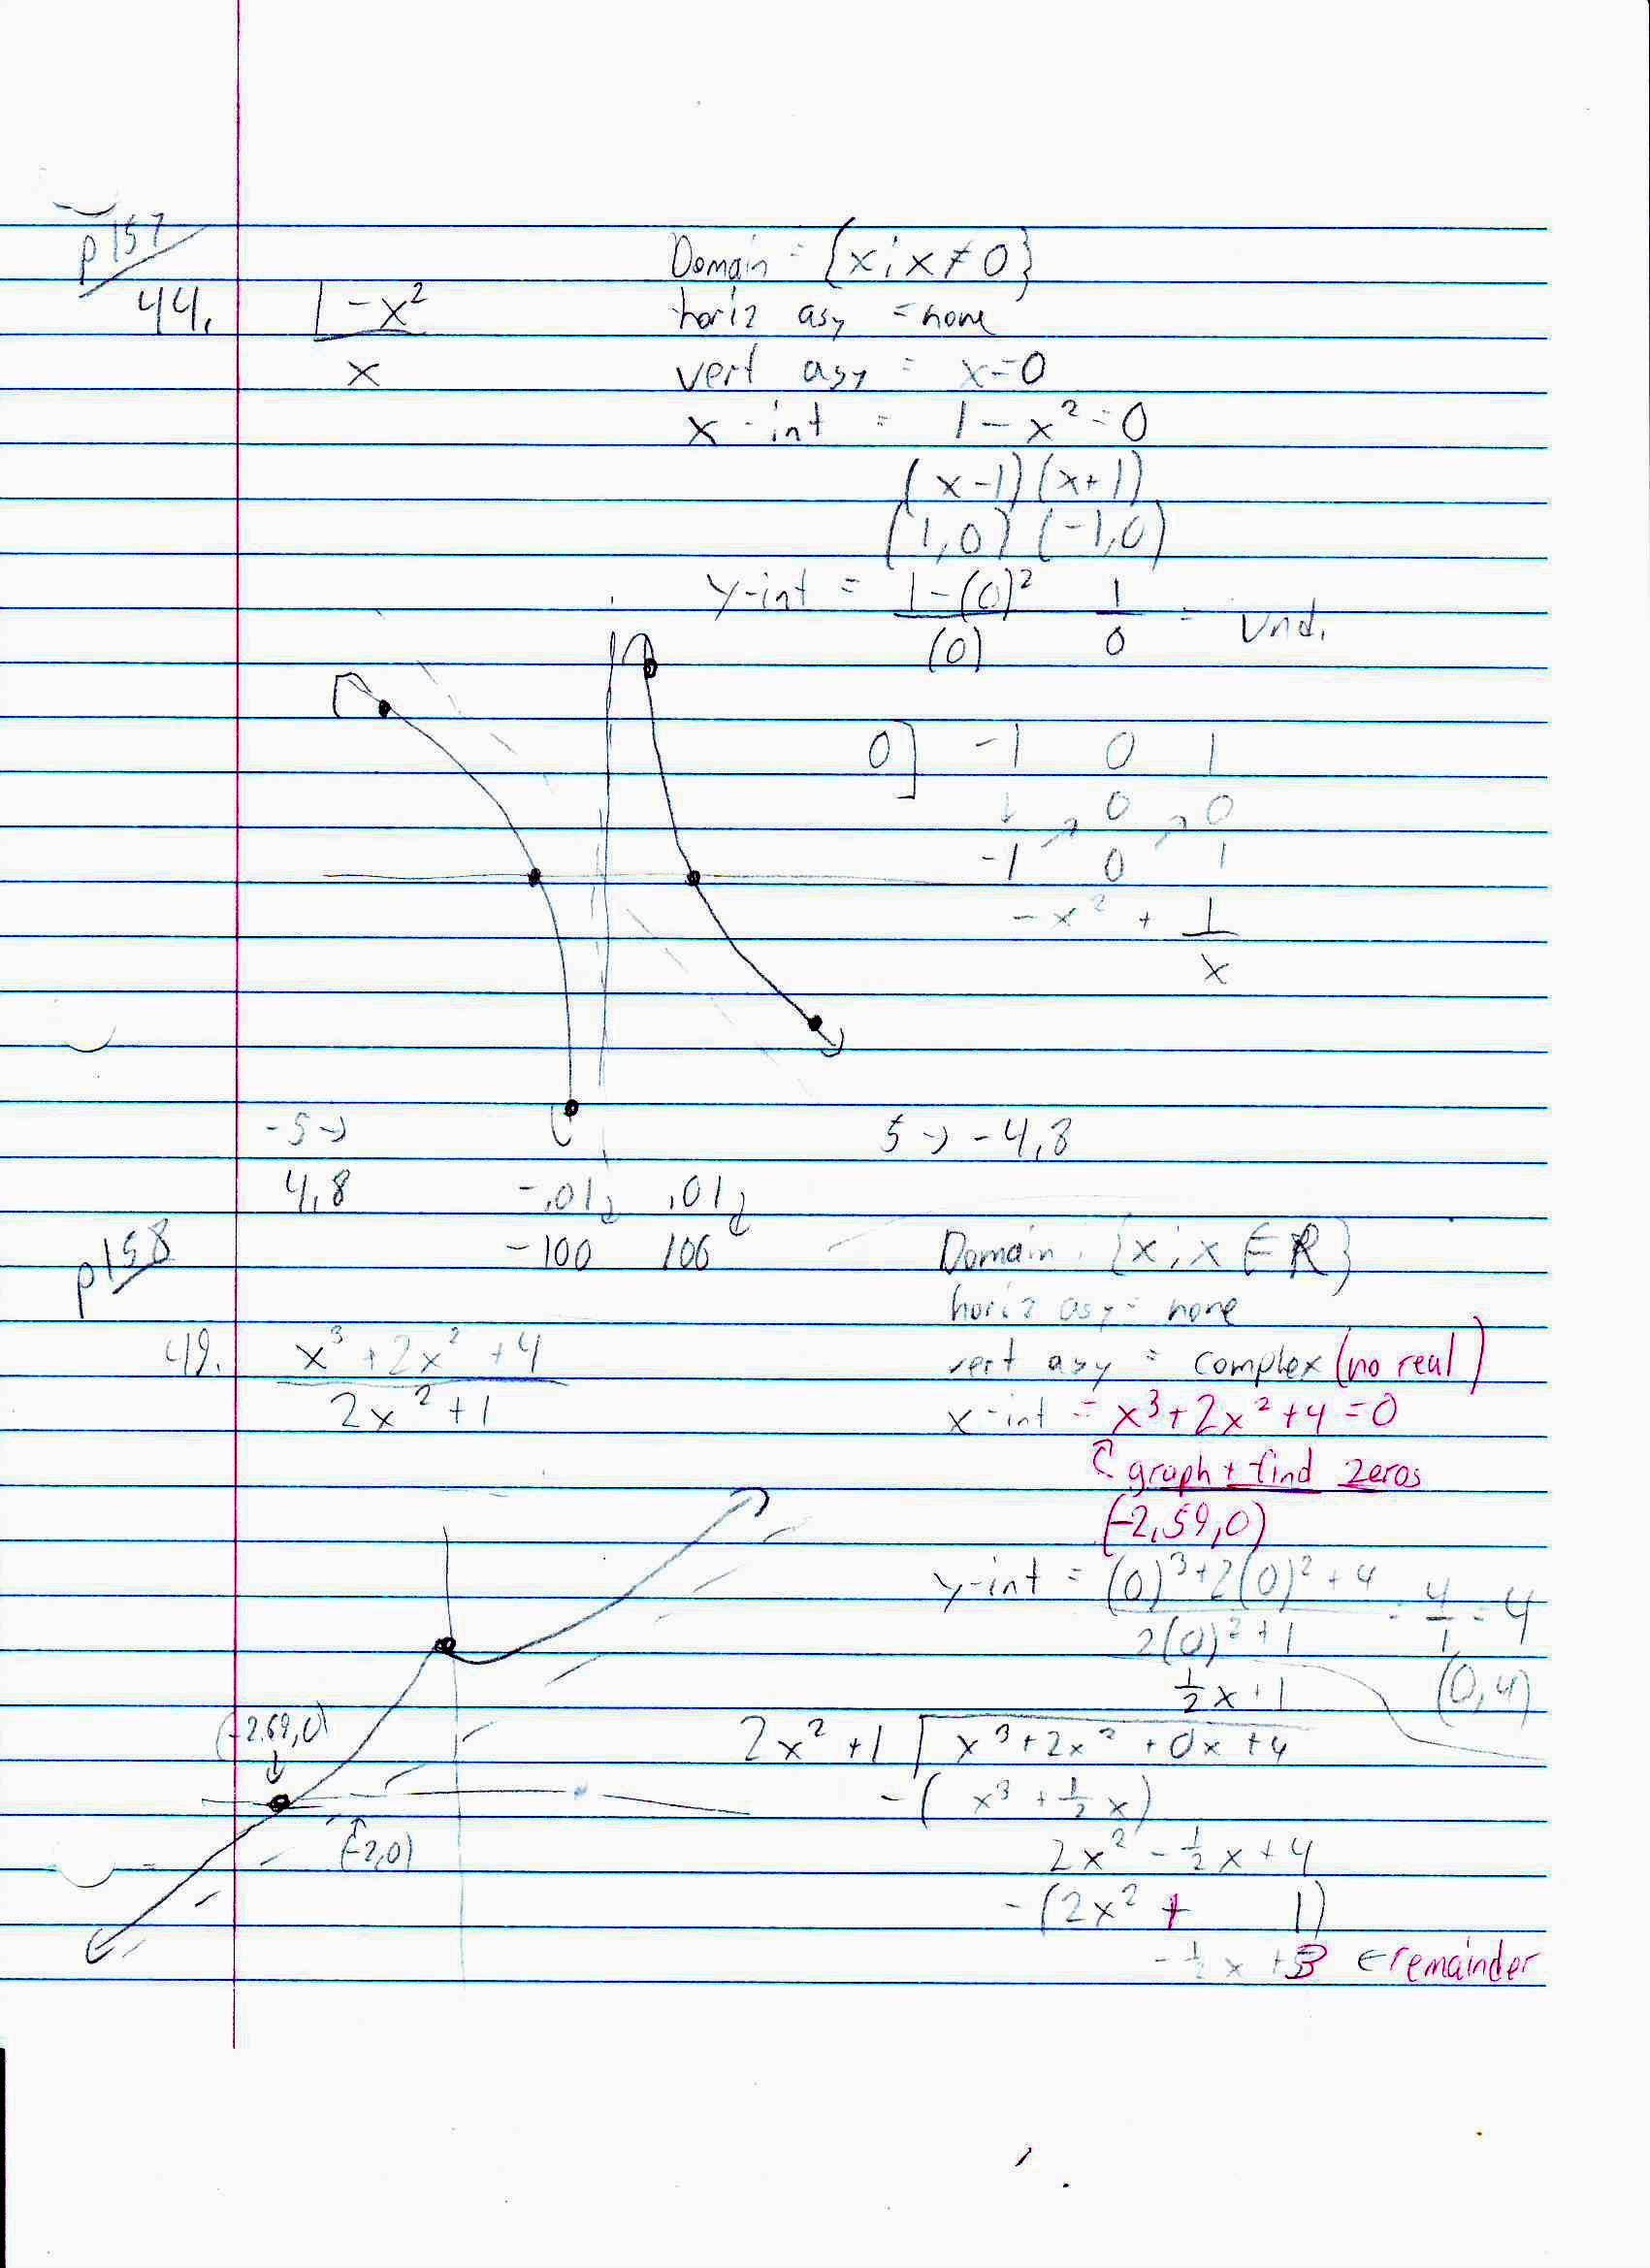 p157
44. 1-x²
x
Domain = {x; x≠0}
horiz asy = none
vert asy = x=0
x-int = 1-x²=0
(x-1)(x+1)
(1,0) (-1,0)
y-int = 1-(0)² 1
(0) 0 = Und.
0] -1 0 1
↓ ↗ 0 ↗ 0
-1 0 1
-x² + 1
x
-5→
4.8
-.01↓ .01↓
-100 100
5→-4.8
p158
49. x³+2x²+4
2x²+1
Domain: {x; x∈R}
horiz asy = none
vert asy = complex (no real)
x-int = x³+2x²+4=0
↑ graph + find zeros
(-2.59,0)
y-int = (0)³+2(0)²+4 = 4 = 4
2(0)²+1 1
(0,4)
½x+1
2x²+1 x³+2x²+0x+4
-(x³+½x)
2x²-½x+4
-(2x²+ 1)
-½x+3 ←remainder
(-2.59,0)
↓
↑
(-2,0)